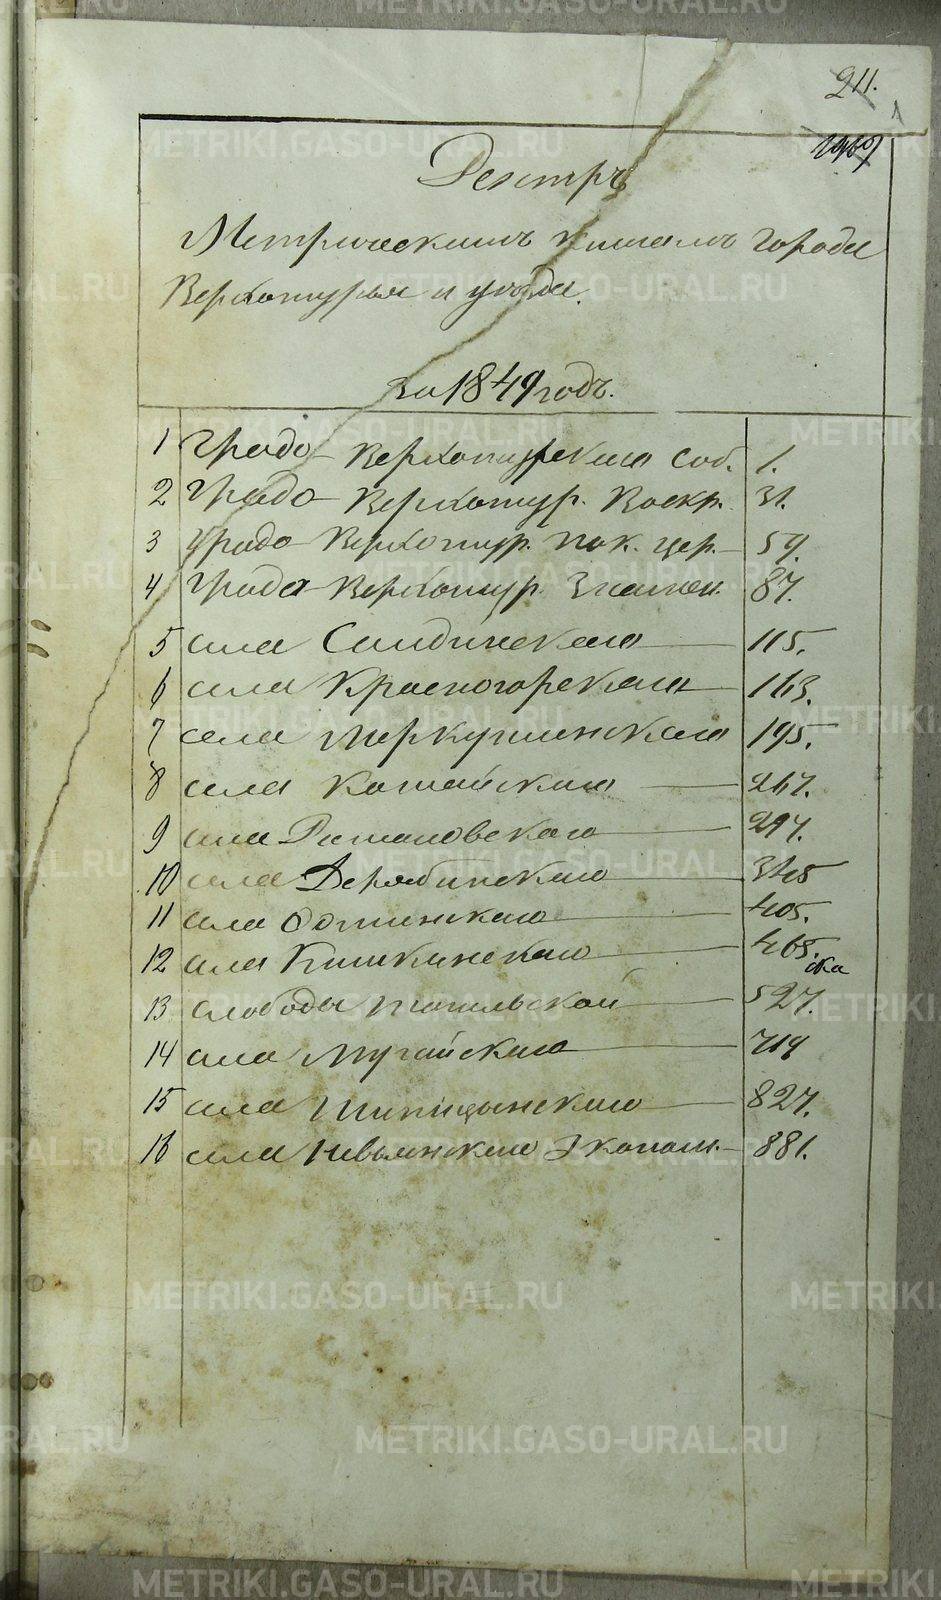 211.
1
Реэстръ
Метрическимъ книгамъ города
Верхотурья и уѣзда.
за 1849 годъ.
1 Градо Верхотурскаго Соб. 1.
2 Градо Верхотур. Воскр. 31.
3 Градо Верхотур. Пок. цер. 59.
4 Градо Верхотур. Знамен. 87.
5 села Салдинскаго 115.
6 села Красногорскаго 163.
7 села Меркушинскаго 195.
8 села Коптяйскаго 267.
9 села 297.
10 села Дерябинскаго 345
11 села 405.
12 села Кишкинскаго 465.
13 слободы Тагильской 527.
14 села Мугайскаго 719
15 села Шипицынскаго 827.
16 села Невьянскаго 881.
METRIKI.GASO-URAL.RU